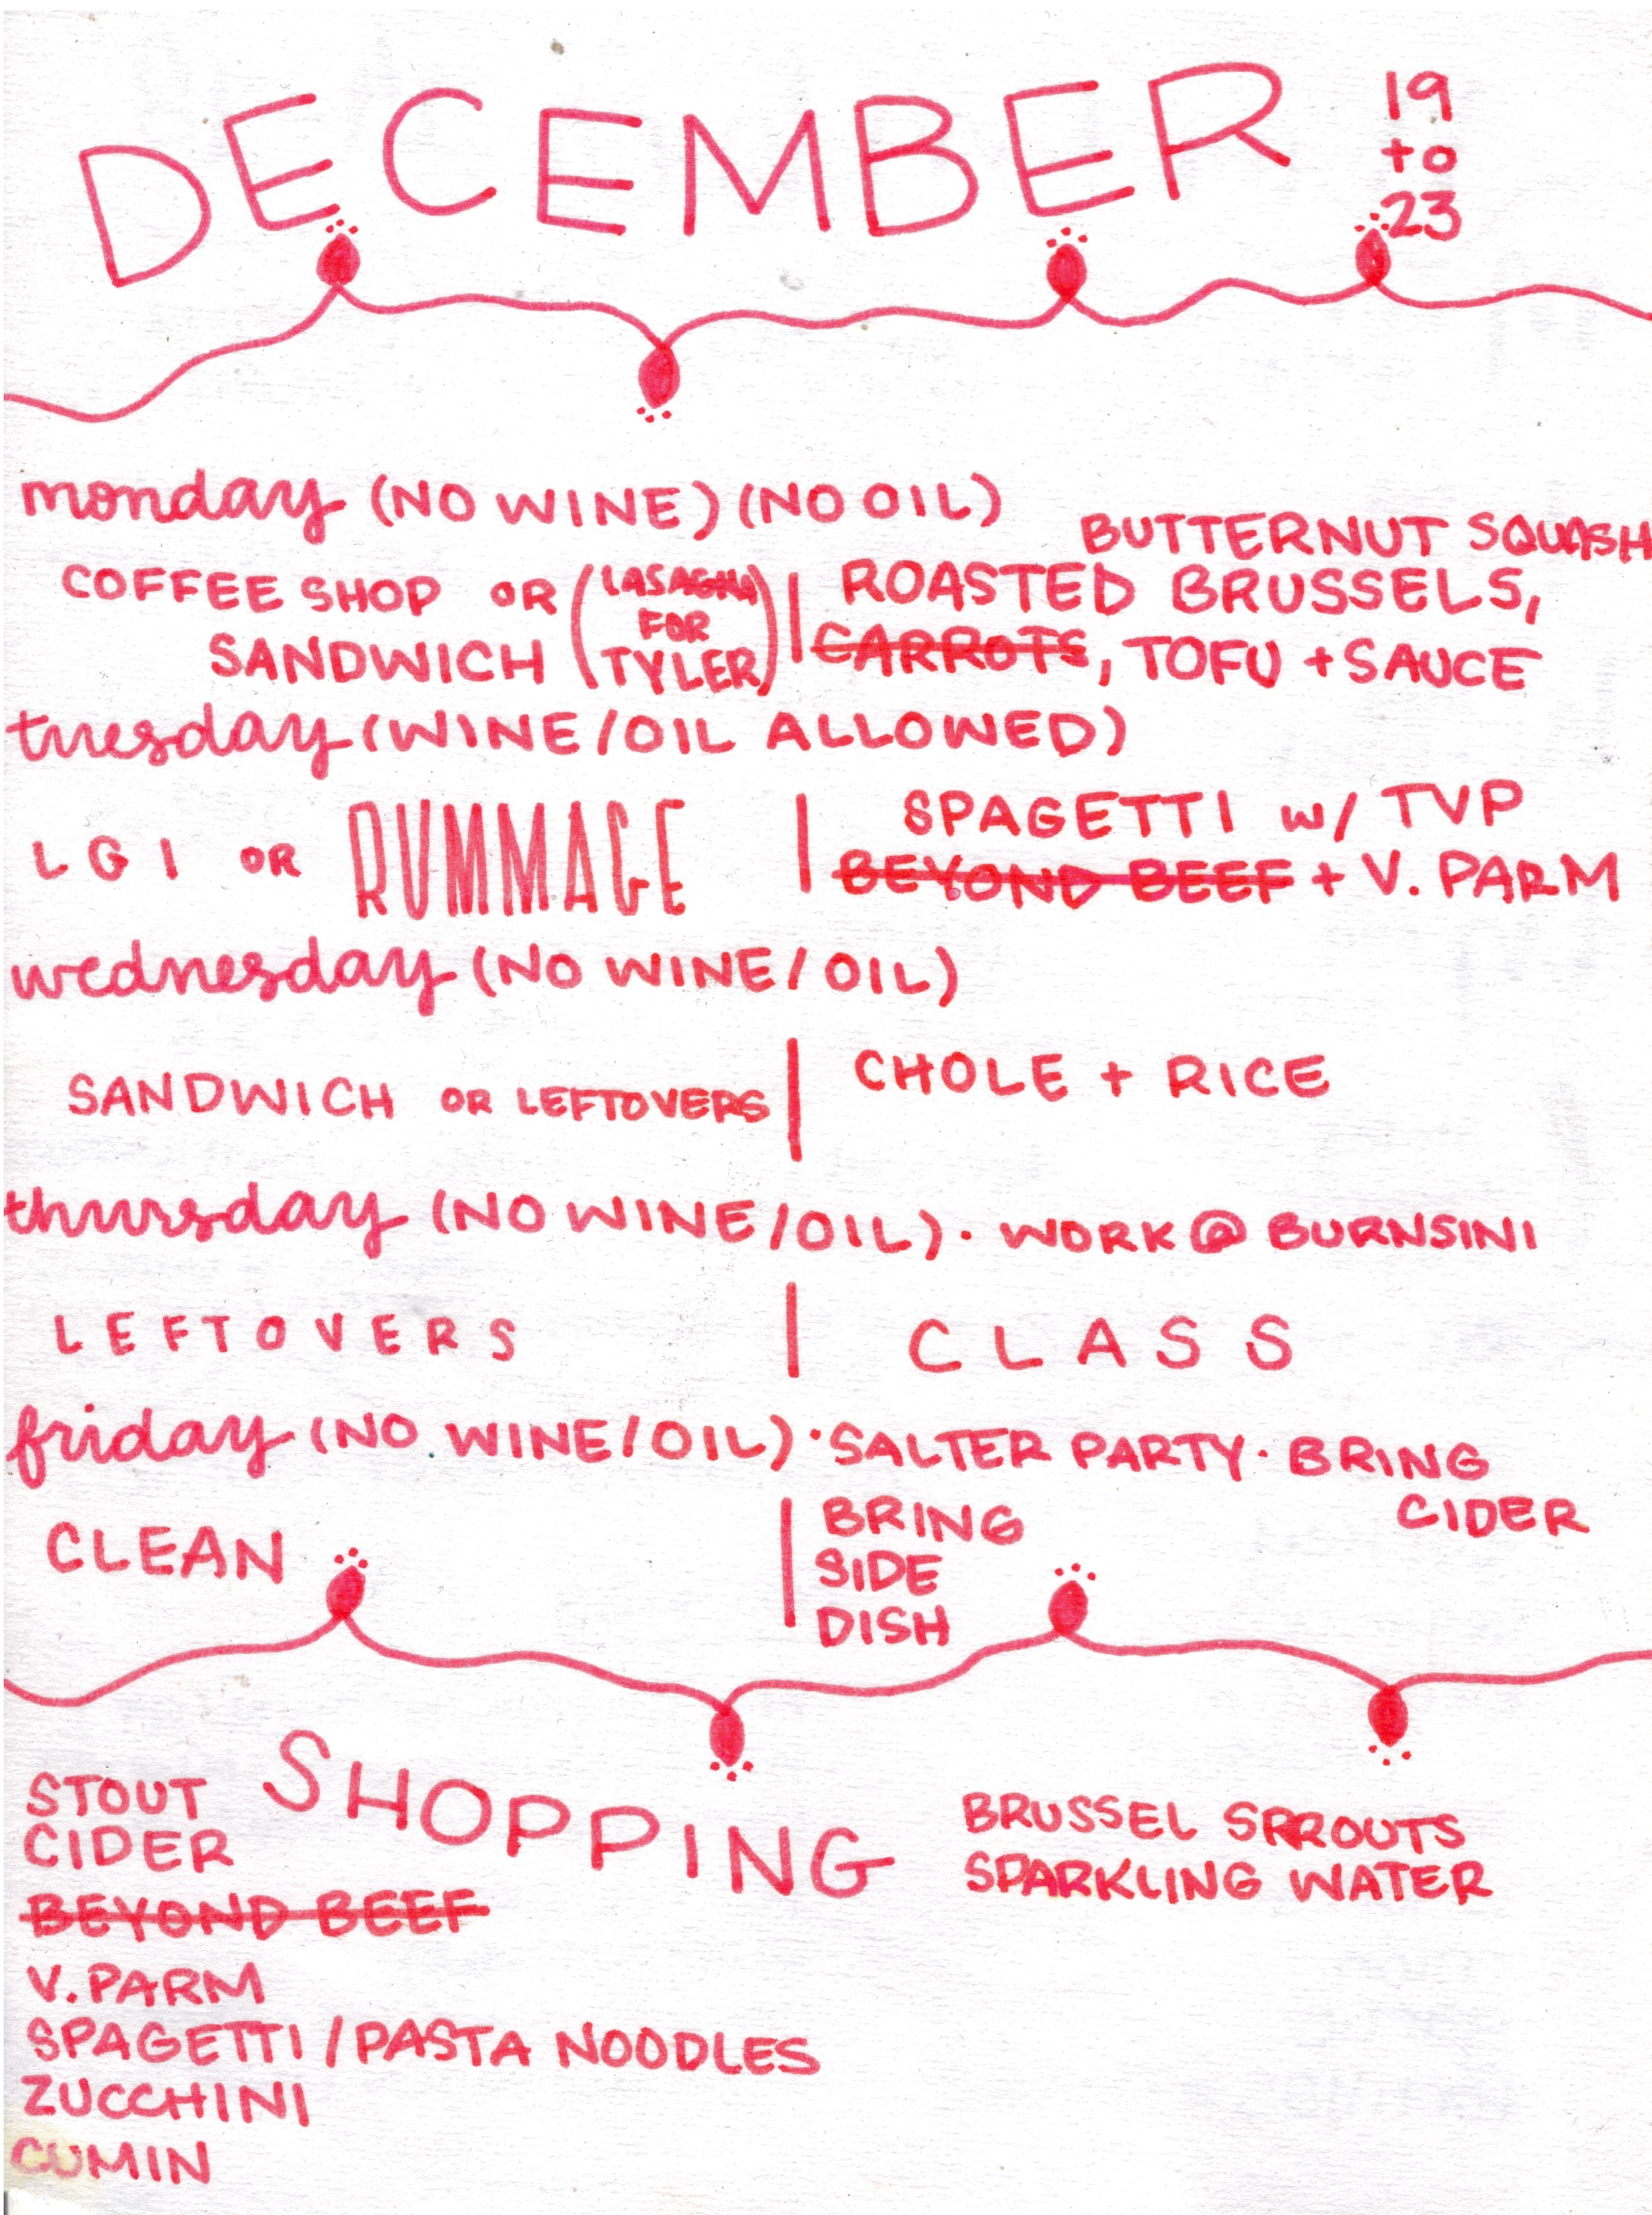 DECEMBER 19
to
23
monday (NO WINE) (NO OIL)
BUTTERNUT SQUASH
COFFEE SHOP OR (LASAGNA | ROASTED BRUSSELS,
FOR
SANDWICH TYLER) CARROTS, TOFU + SAUCE
tuesday (WINE/OIL ALLOWED)
SPAGETTI w/ TVP
LGI OR RUMMAGE | BEYOND BEEF + V. PARM
wednesday (NO WINE/OIL)
SANDWICH OR LEFTOVERS | CHOLE + RICE
thursday (NO WINE/OIL) · WORK @ BURNSINI
LEFTOVERS | CLASS
friday (NO WINE/OIL) · SALTER PARTY · BRING
CIDER
CLEAN | BRING
SIDE
DISH
SHOPPING
STOUT
CIDER
BEYOND BEEF
V. PARM
SPAGETTI / PASTA NOODLES
ZUCCHINI
CUMIN
BRUSSEL SPROUTS
SPARKLING WATER